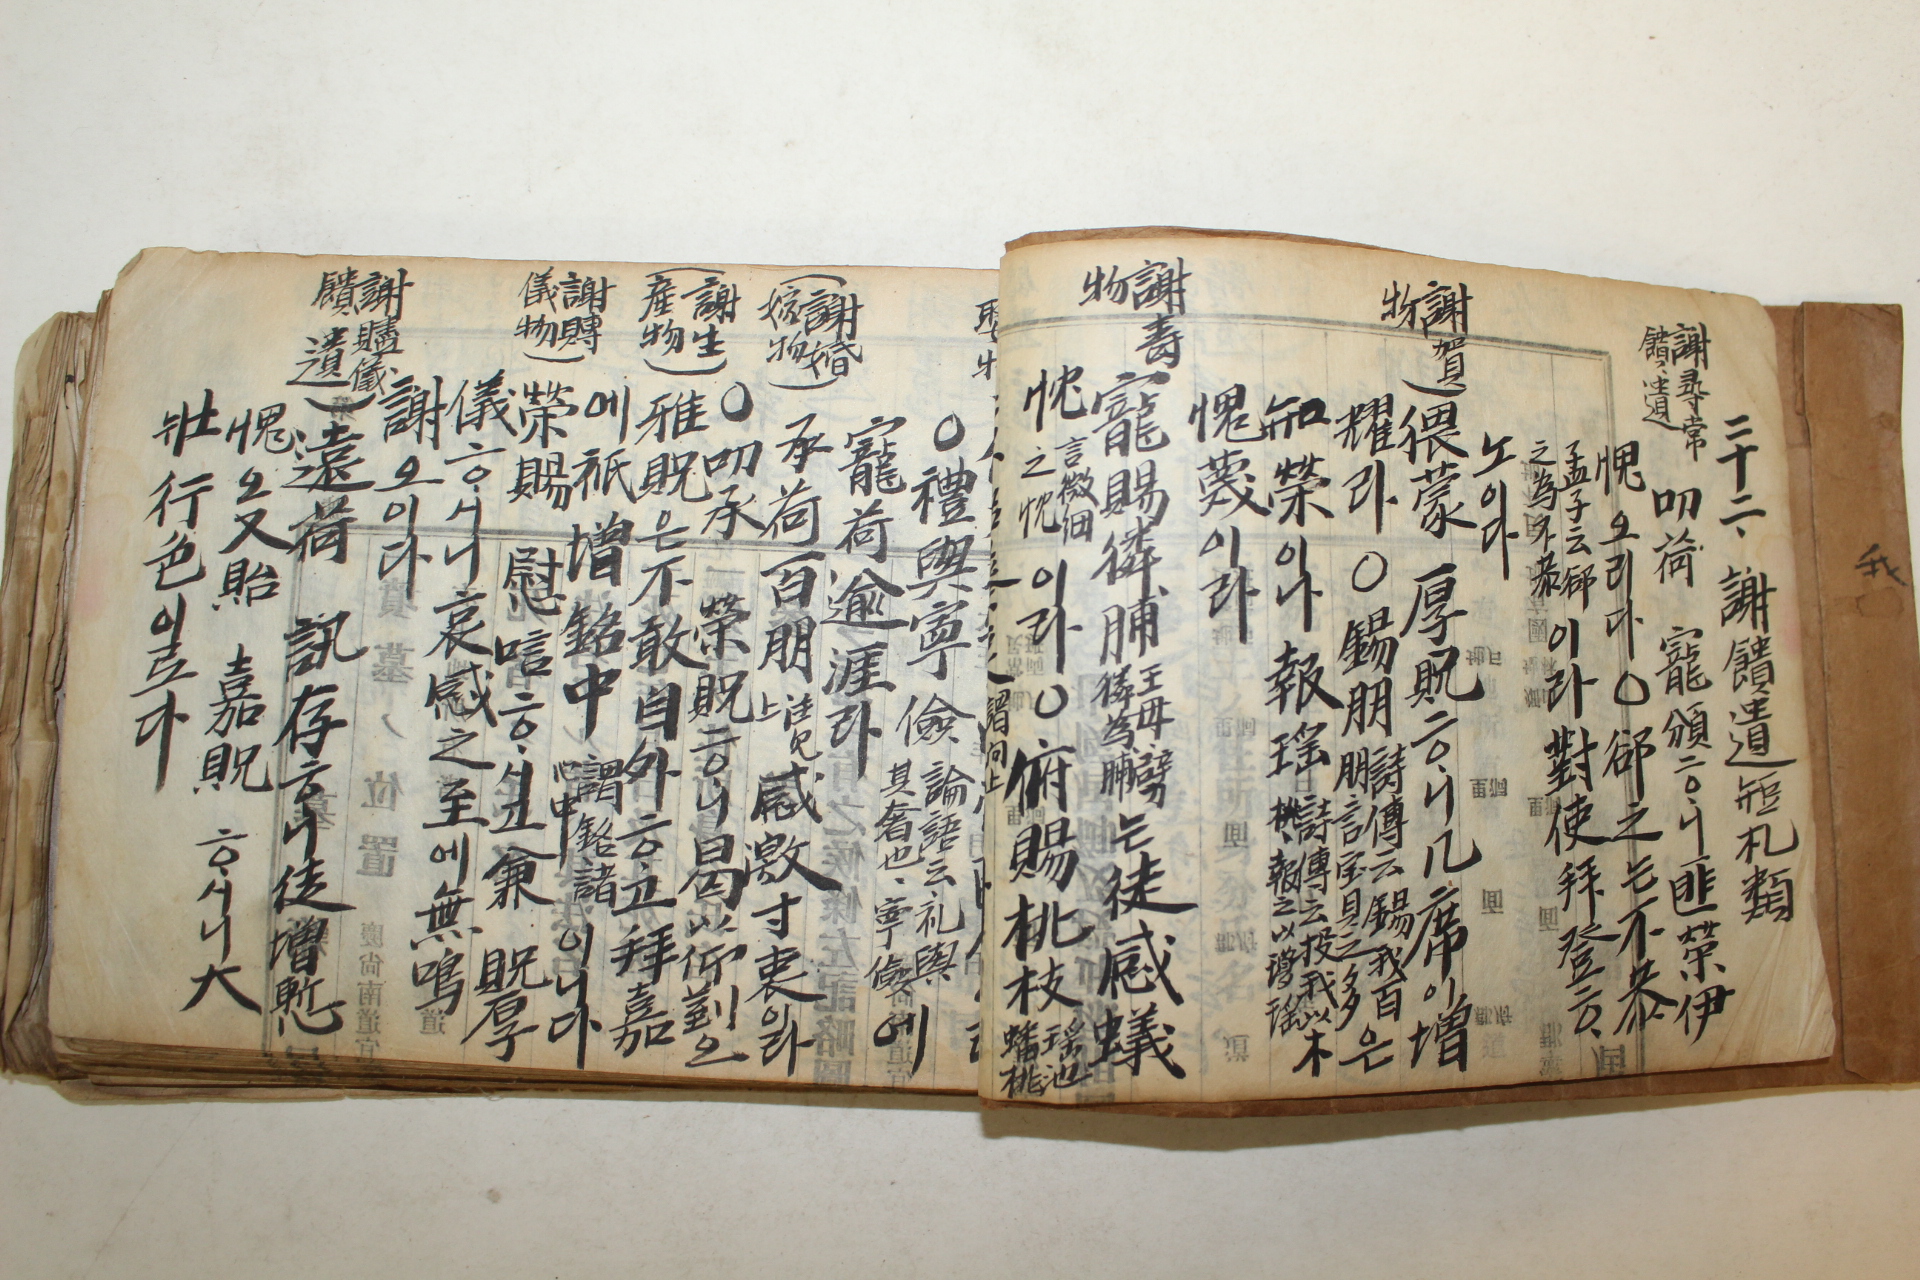 二十二、謝饋遺短札類
謝尋常
饋遺
叨荷 寵頒ᄒᆞ니匪榮伊
愧오리다○郤之는不恭
孟子云郤
之爲不恭
이라對使拜登ᄒᆞ
노이다
謝賀
物
猥蒙 厚貺ᄒᆞ니几席이增
耀라○錫朋
詩傳云錫我百
朋言宝貝之多
은
知榮이나 報瑤
詩傳云投我以木
桃、報之以瓊瑤
愧蔑이라
謝壽
物
寵賜麟脯
王母擘
麟為脯
는徒感蟻
忱
言微細
之忱
이라○俯賜桃枝
瑤池
蟠桃
謂何上
○禮與寧儉
論語云礼與
其奢也、寧儉
에
寵荷逾涯라
謝婚
嫁物
承荷百朋 感激寸衷이라
○叨承 榮貺ᄒᆞ니曷以衍剳오
謝生
産物
雅貺은不敢自外ᄒᆞ고拜嘉
에祇增銘中
謂銘諸
心中
이니다
謝賻
儀物
榮賜 慰唁ᄒᆞ시고兼 貺厚
儀ᄒᆞ시니哀感之至에無鳴
謝오이다
謝贐儀、
饋遺
遠荷 訊存ᄒᆞ니徒增慙
愧오又貽 嘉貺ᄒᆞ시니大
壯行色이로다
我